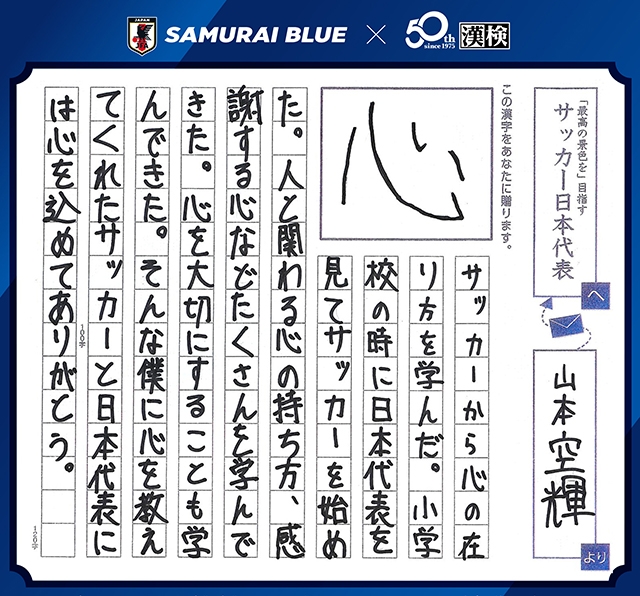 JAPAN
SAMURAI BLUE × 50th since 1975 漢検
「最高の景色を」目指す
サッカー日本代表
へ
山本空輝
より
この漢字をあなたに贈ります。
心
サッカーから心の在
り方を学んだ。小学
校の時に日本代表を
見てサッカーを始め
た。人と関わる心の持ち方、感
謝する心などたくさんを学んで
きた。心を大切にすることも学
んできた。そんな僕に心を教え
てくれたサッカーと日本代表に
100字
は心を込めてありがとう。
120字